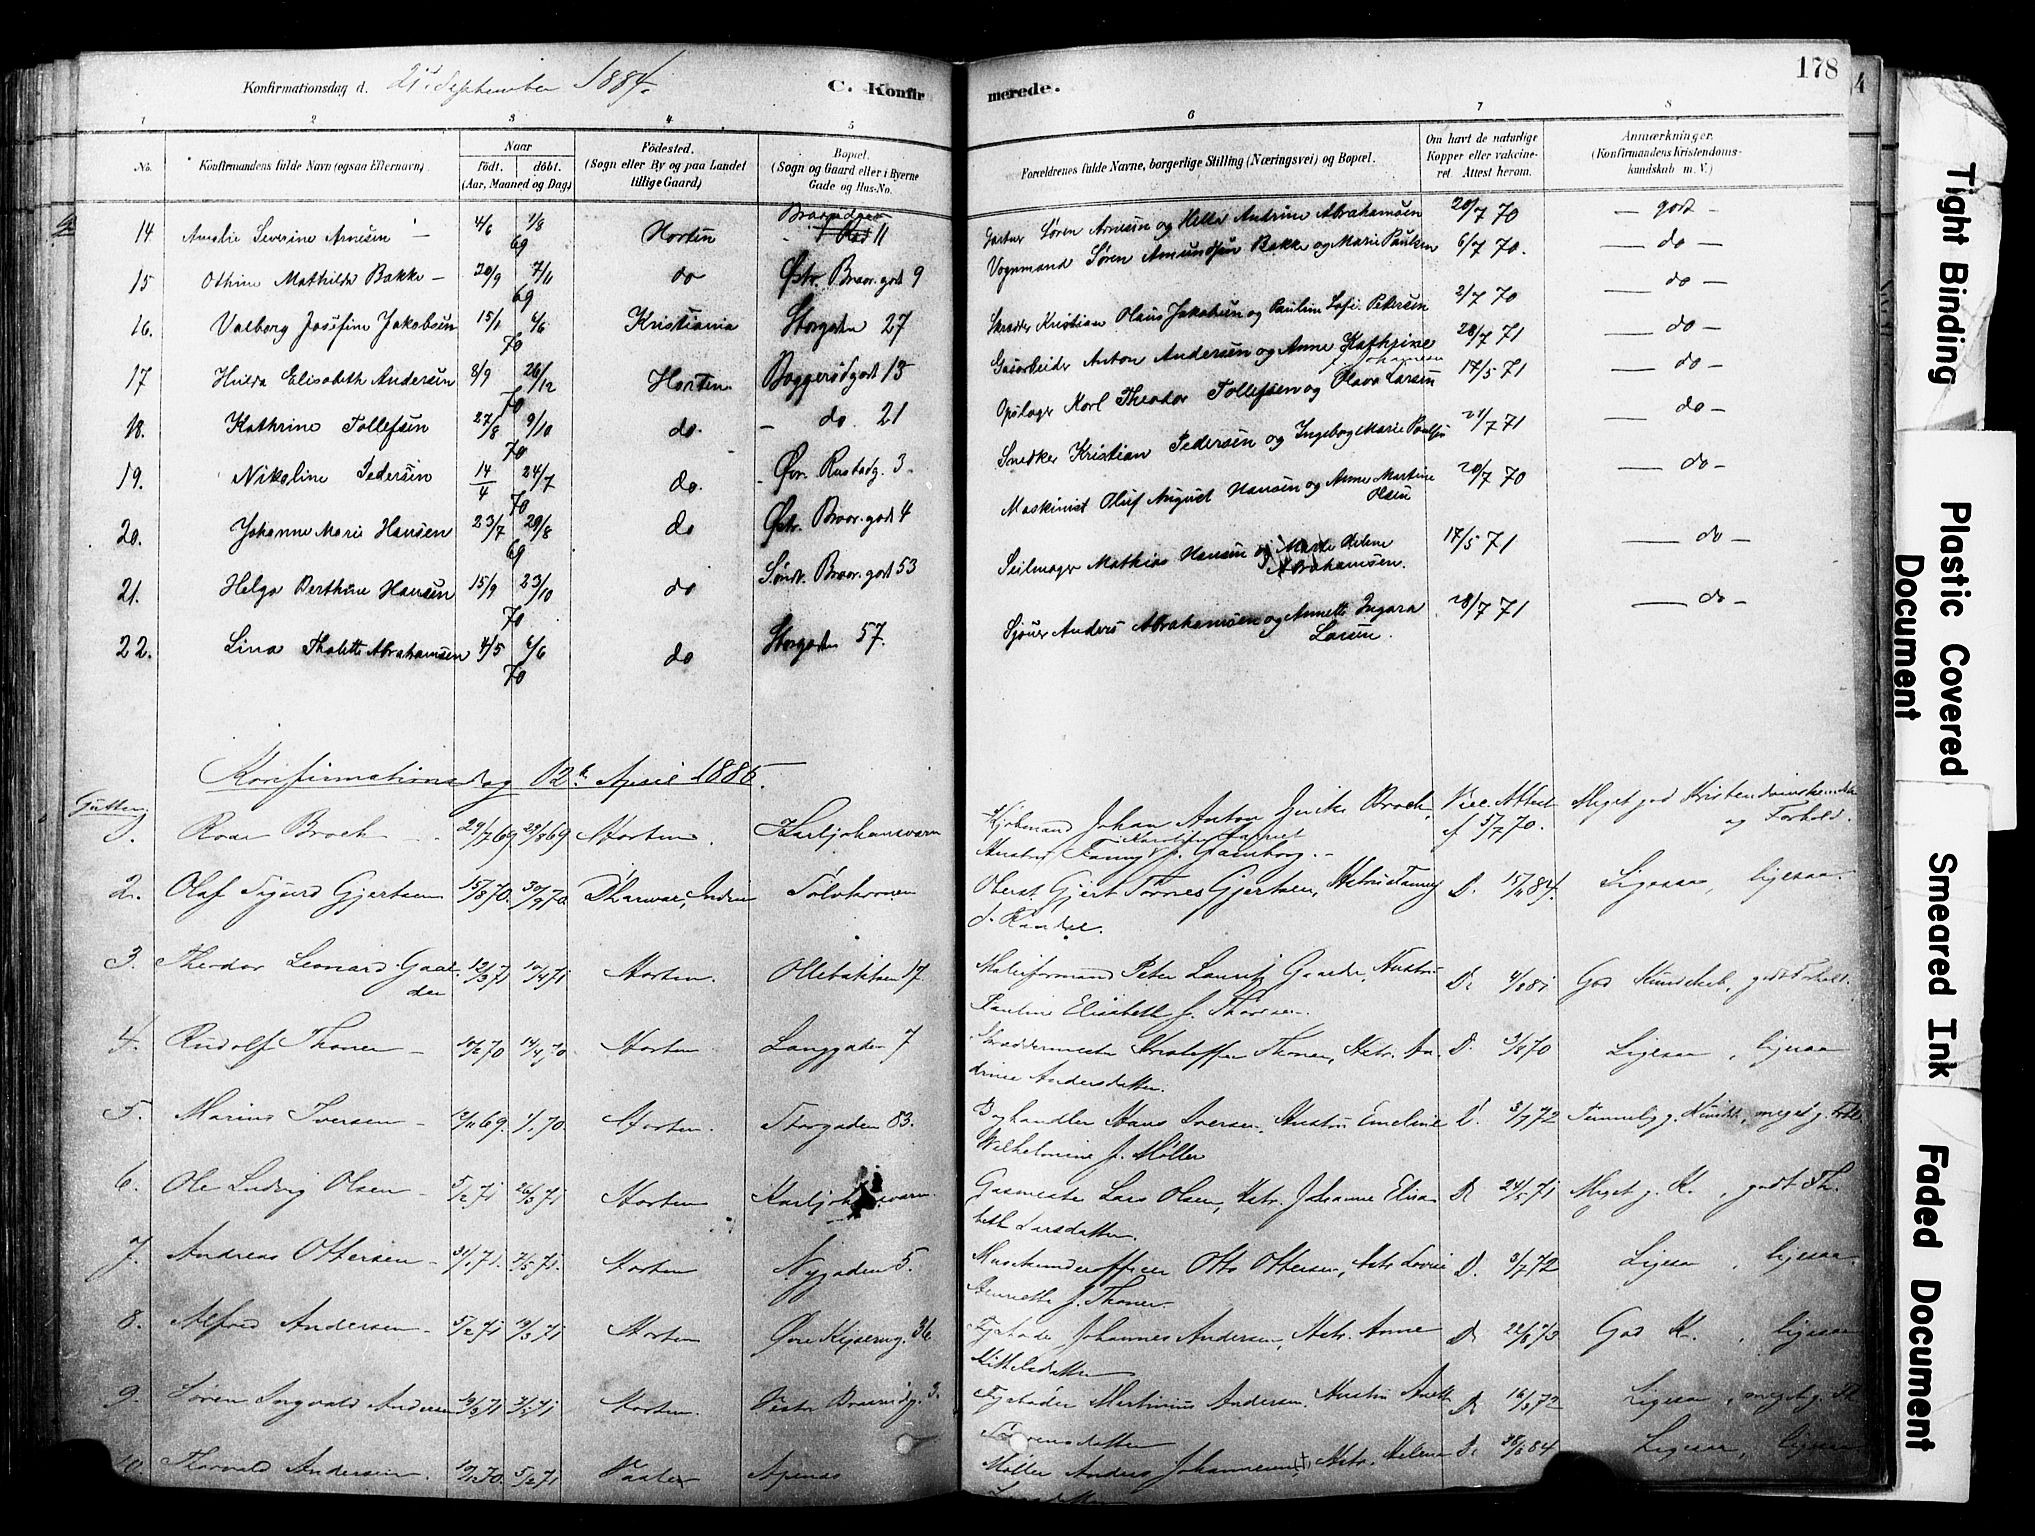 178
Konfirmationsdag d. 21. September 1884.
C. Konfirmerede.
1 2 3 4 5 6 7 8
No. Konfirmandens fulde Navn (ogsaa Efternavn). Naar født. døbt. (Aar, Maaned og Dag) Fødested. (Sogn eller By og paa Landet tillige Gaard) Bopæl. (Sogn og Gaard eller i Byerne Gade og Hus-No. Forældrenes fulde Navne, borgerlige Stilling (Næringsvei) og Bopæl. Om havt de naturlige Kopper eller vakcineret. Attest herom. Anmærkninger. (Konfirmandens Kristendomskundskab m. V.)
14 Amalie Severine Arnesen 4/6 1/8 69 Horten 11 Gartner Søren Arnesen og Helle Andrine Abrahamsen 20/7 70 — godt —
15 Othine Mathilde Bakke — 20/9 7/11 69 do Østr. Braar.gad 9 Vognmand Søren Amundsen Bakke og Marie Paulsen 6/7 70. — do —
16. Valborg Josefine Jakobsen 15/1 4/6 70 Kristiania Storgaden 27 Skrædder Kristian Olaus Jakobsen og Pauline Sofie Petersen 2/7 70 — do —
17 Hulda Elisabeth Andersen 8/9 26/12 70 Horten Baggerødgad 13 Gasarbeider Anton Andersen og Anne Kathrine Johansen 28/7 71 — do —
18. Kathrine Tollefsen 27/8 9/10 70 do. — do. 21 Opsitager Karl Theodor Tollefsen og Olava Larsen 17/5 71 — do —
19. Nikoline Pedersen 14/4 24/7 70 do. Øvr. Rustadg. 3. Snedker Kristian Pedersen og Ingeborg Marie Paulsen 21/7 71 — do —
20. Johanne Marie Hansen 23/7 29/8 69 do Østr. Braar.gad 4 Maskinist Oluf August Hansen og Anne Martine Olsen 20/7 70 — do —
21. Helga Berthine Hansen 15/9 23/10 70 do Søndr. Braar.gad 53 Seilmager Mathias Hansen og Marte Helene Abrahamsen. 17/5 71 — do —
22. Lina Thalette Abrahamsen 4/5 6/6 70 do Storgaden 57. Sjøuer Anders Abrahamsen og Annette Ingara Larsen. 28/7 71 — do —
Konfirmationsdag 12te April 1885.
Gutter
1. Roar Broch 29/7 69 29/8 69 Horten. Karljohansværn Johan Anton Broch, Hustru Fanny f. Gamborg. Vac. Attest af 5/7 70. Meget god Kristendomskundsk. og Forhold.
2. Olaf Sigurd Gjertsen 15/8 70. 30/9 70. Dharwar, Indien Oberst Gjert Tønnes Gjertsen, Hstru Fanny f. D. 15/11 84. Ligesaa, ligesaa.
3. Theodor Leonard Gaarder 12/3 71 10/4 71 Horten. Ollebakken 17. Malerformand Peter Lauritz Gaarder, Hustru Pauline Elisabeth f. Thorsen. D. 4/8 81 God Kundskab, godt Forhold.
4. Rudolf Thoner — 10/2 70 14/4 70 Horten Langgaden 7 Skræddermester Kristoffer Thoner, Hstr. Andrine Andersdatter. D. 3/8 70 Ligesaa, ligesaa
5. Marius Iversen — 12/11 69. 1/1 70. Horten. Storgaden 83. Boghandler Hans Iversen, Hustru Emeline Wilhelmine f. Møller D. 3/7 72 Temmelig g. Kundsk., meget g. Forh.
6. Ole Ludvig Olsen — 5/2 71 26/3 71 Horten Karljohansværn Gasmester Lars Olsen, Hstr. Johanne Elisabeth Larsdatter. D. 24/5 71 Meget g. K., godt Fh.
7. Andreas Ottersen — 31/1 71. 7/5 71. Horten Nygaden 5. Otto Ottersen, Hstr. Lovise Henriette f. Thoner. D. 3/7 72 Ligesaa, ligesaa.
8. Alfred Andersen — 5/2 71 19/3 71 Horten Øvre Keiserg. 36. Fyrbøder Johannes Andersen, Hstr. Anne Kittelsdatter D. 22/8 73 God K., ligesaa
9. Søren Ingvald Andersen Horten. Vestr. Braarudg. 3. Fyrbøder Martinius Andersen, Hustru Anette Sørensdatter D. 16/3 72 Ligesaa, meget g. Fh
10. Thorvald Andersen. 5/2 71 Vaaler Apenæs Møller Anders Johannesen (†), Hstr. Helene D. 28/8 84 Ligesaa, ligesaa
Tight Binding
Plastic Covered Document
Smeared Ink
Faded Document